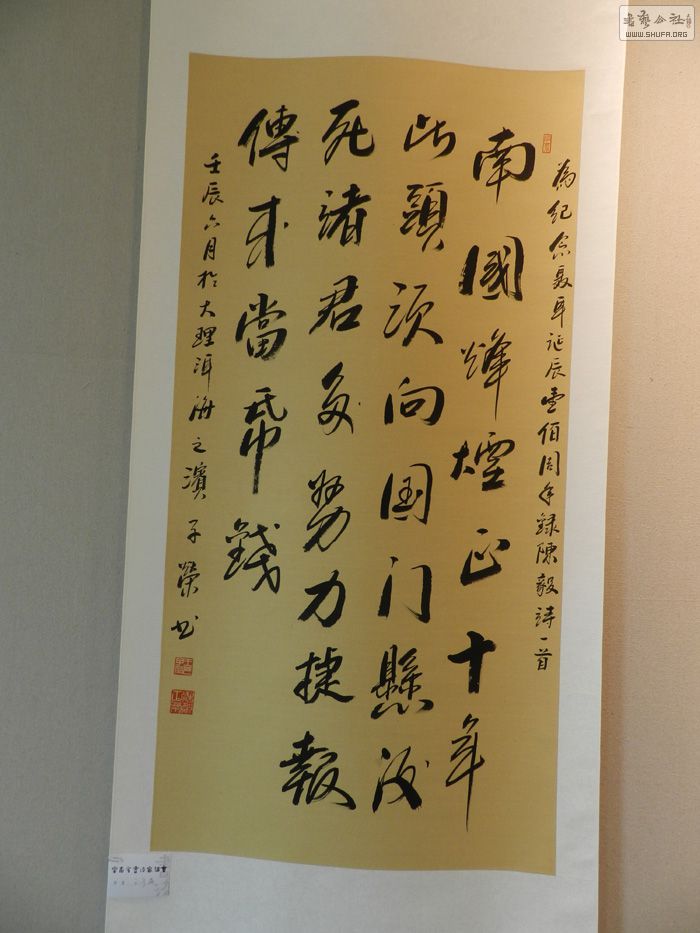 為紀念聂耳诞辰壹佰周年錄陳毅詩一首
南國烽煙正十年
此頭須向国门懸後
死諸君多努力捷報
傳来當紙錢
壬辰六月於大理洱海之濱子榮书
WWW.SHUFA.ORG